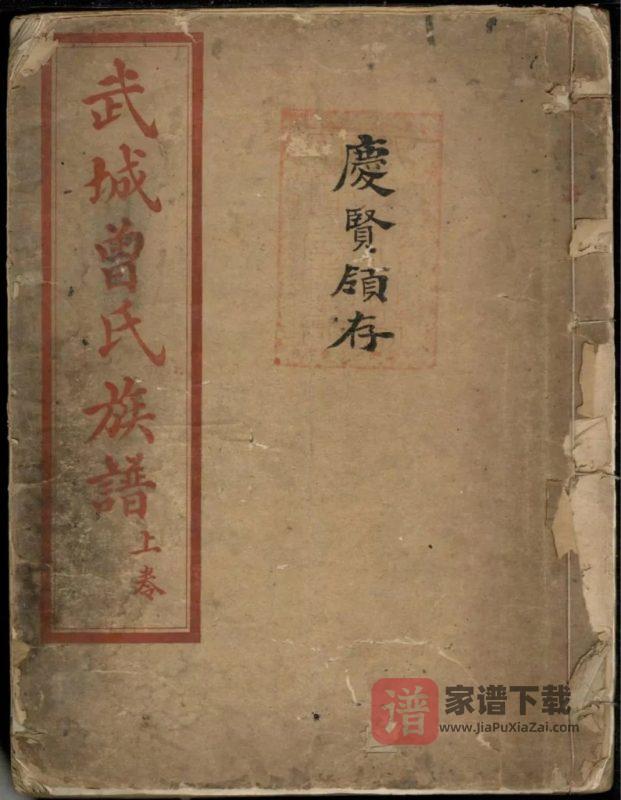 慶賢領存
武城曾氏族譜
上卷
谱
家谱下载
www.JiaPuXiaZai.com